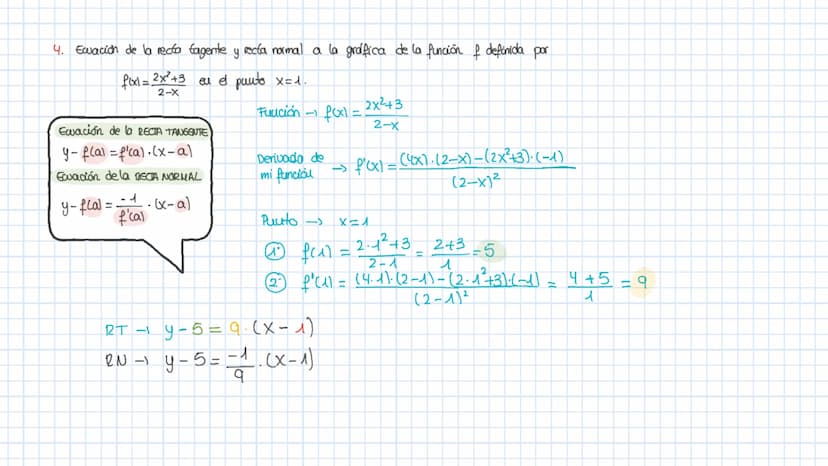 4. Ecuación de la recta tagente y recta normal a la gráfica de la función f definida por
f(x) = \frac{2x²+3}{2-x} en el punto x=1.
Ecuación de la RECTA TANGENTE
y - f(a) = f'(a) · (x - a)
Ecuación de la RECTA NORMAL
y - f(a) = \frac{-1}{f'(a)} · (x - a)
Función → f(x) = \frac{2x²+3}{2-x}
Derivada de mi función → f'(x) = \frac{(4x)·(2-x)-(2x²+3)·(-1)}{(2-x)²}
Punto → x=1
1º f(1) = \frac{2·1²+3}{2-1} = \frac{2+3}{1} = 5
2º f'(1) = \frac{(4·1)·(2-1)-(2·1²+3)·(-1)}{(2-1)²} = \frac{4+5}{1} = 9
RT → y - 5 = 9·(x - 1)
RN → y - 5 = \frac{-1}{9}·(x - 1)